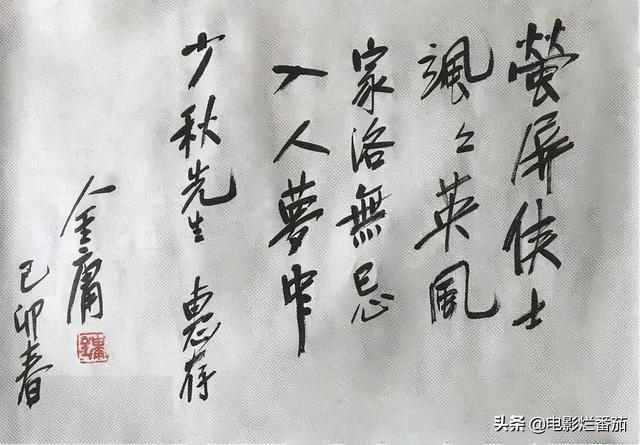 螢屏俠士
颯々英風
家洛無忌
入人夢中
少秋先生 惠存
金庸
己卯春
头条 @电影烂番茄